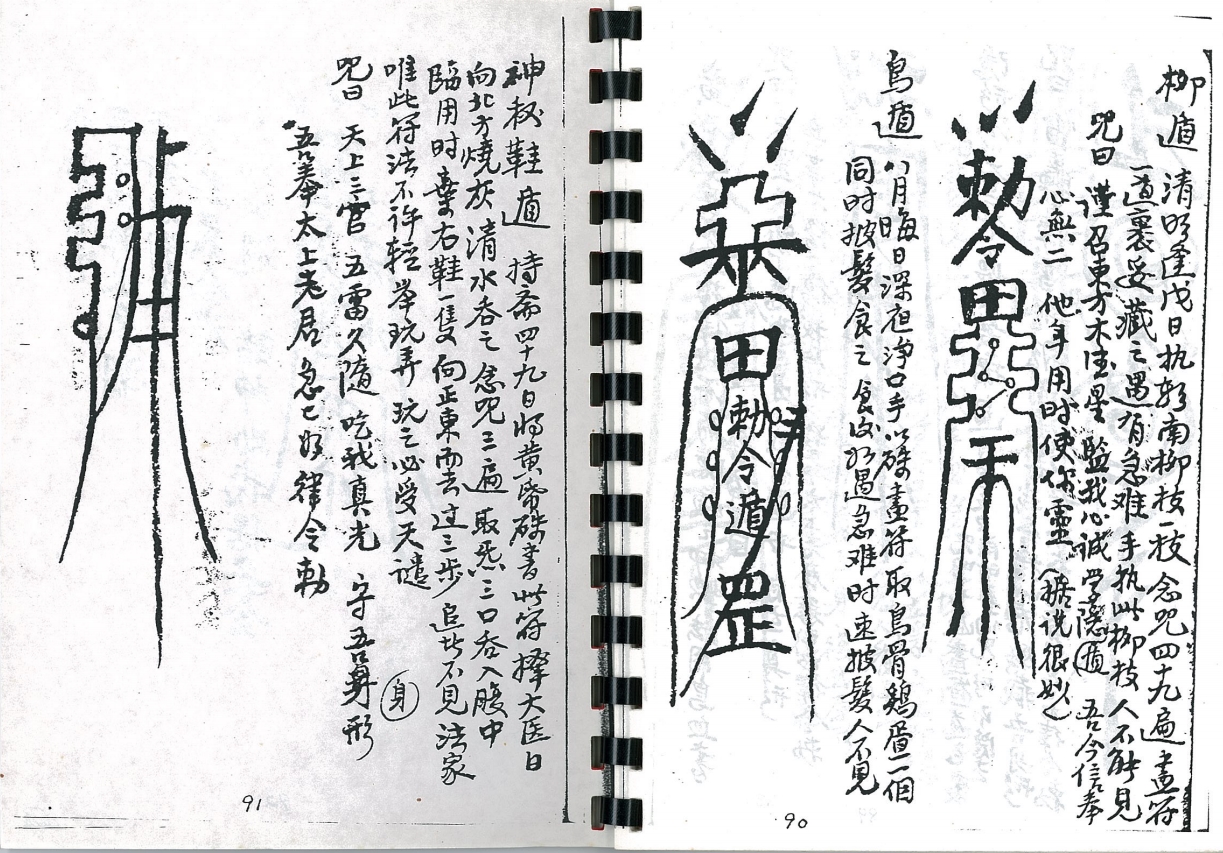 柳遁
清明逢戊日执彩南柳枝一枝 念咒四十九遍 畫符
一道裹妥藏之遇有急难 手执此柳枝 人不能見
咒曰 謹召東方木德星 监我心诚学隐遁 吾今信奉
心無二 他年用時使你靈 (据说很妙)
勅令田
鳥遁
八月晦日深夜淨口手以硃畫符 取鳥骨鷄蛋一個
同时披髮食之 食后如遇急难时速披髮人不見
田
勅令遁
罡
90
神秘鞋遁 持斋四十九日将黄帋硃書此符擇大医日
向北方燒灰清水吞之 念咒三遍 取炁三口吞入腹中
臨用时 棄右鞋一隻 向正東而去 过三步 追者不見 法家
唯此符法不许輕举玩弄 玩之必受天譴
咒曰 天上三官 五雷久隨 吃我真光 守吾身形
身
吾奉太上老君急急如律令勅
91